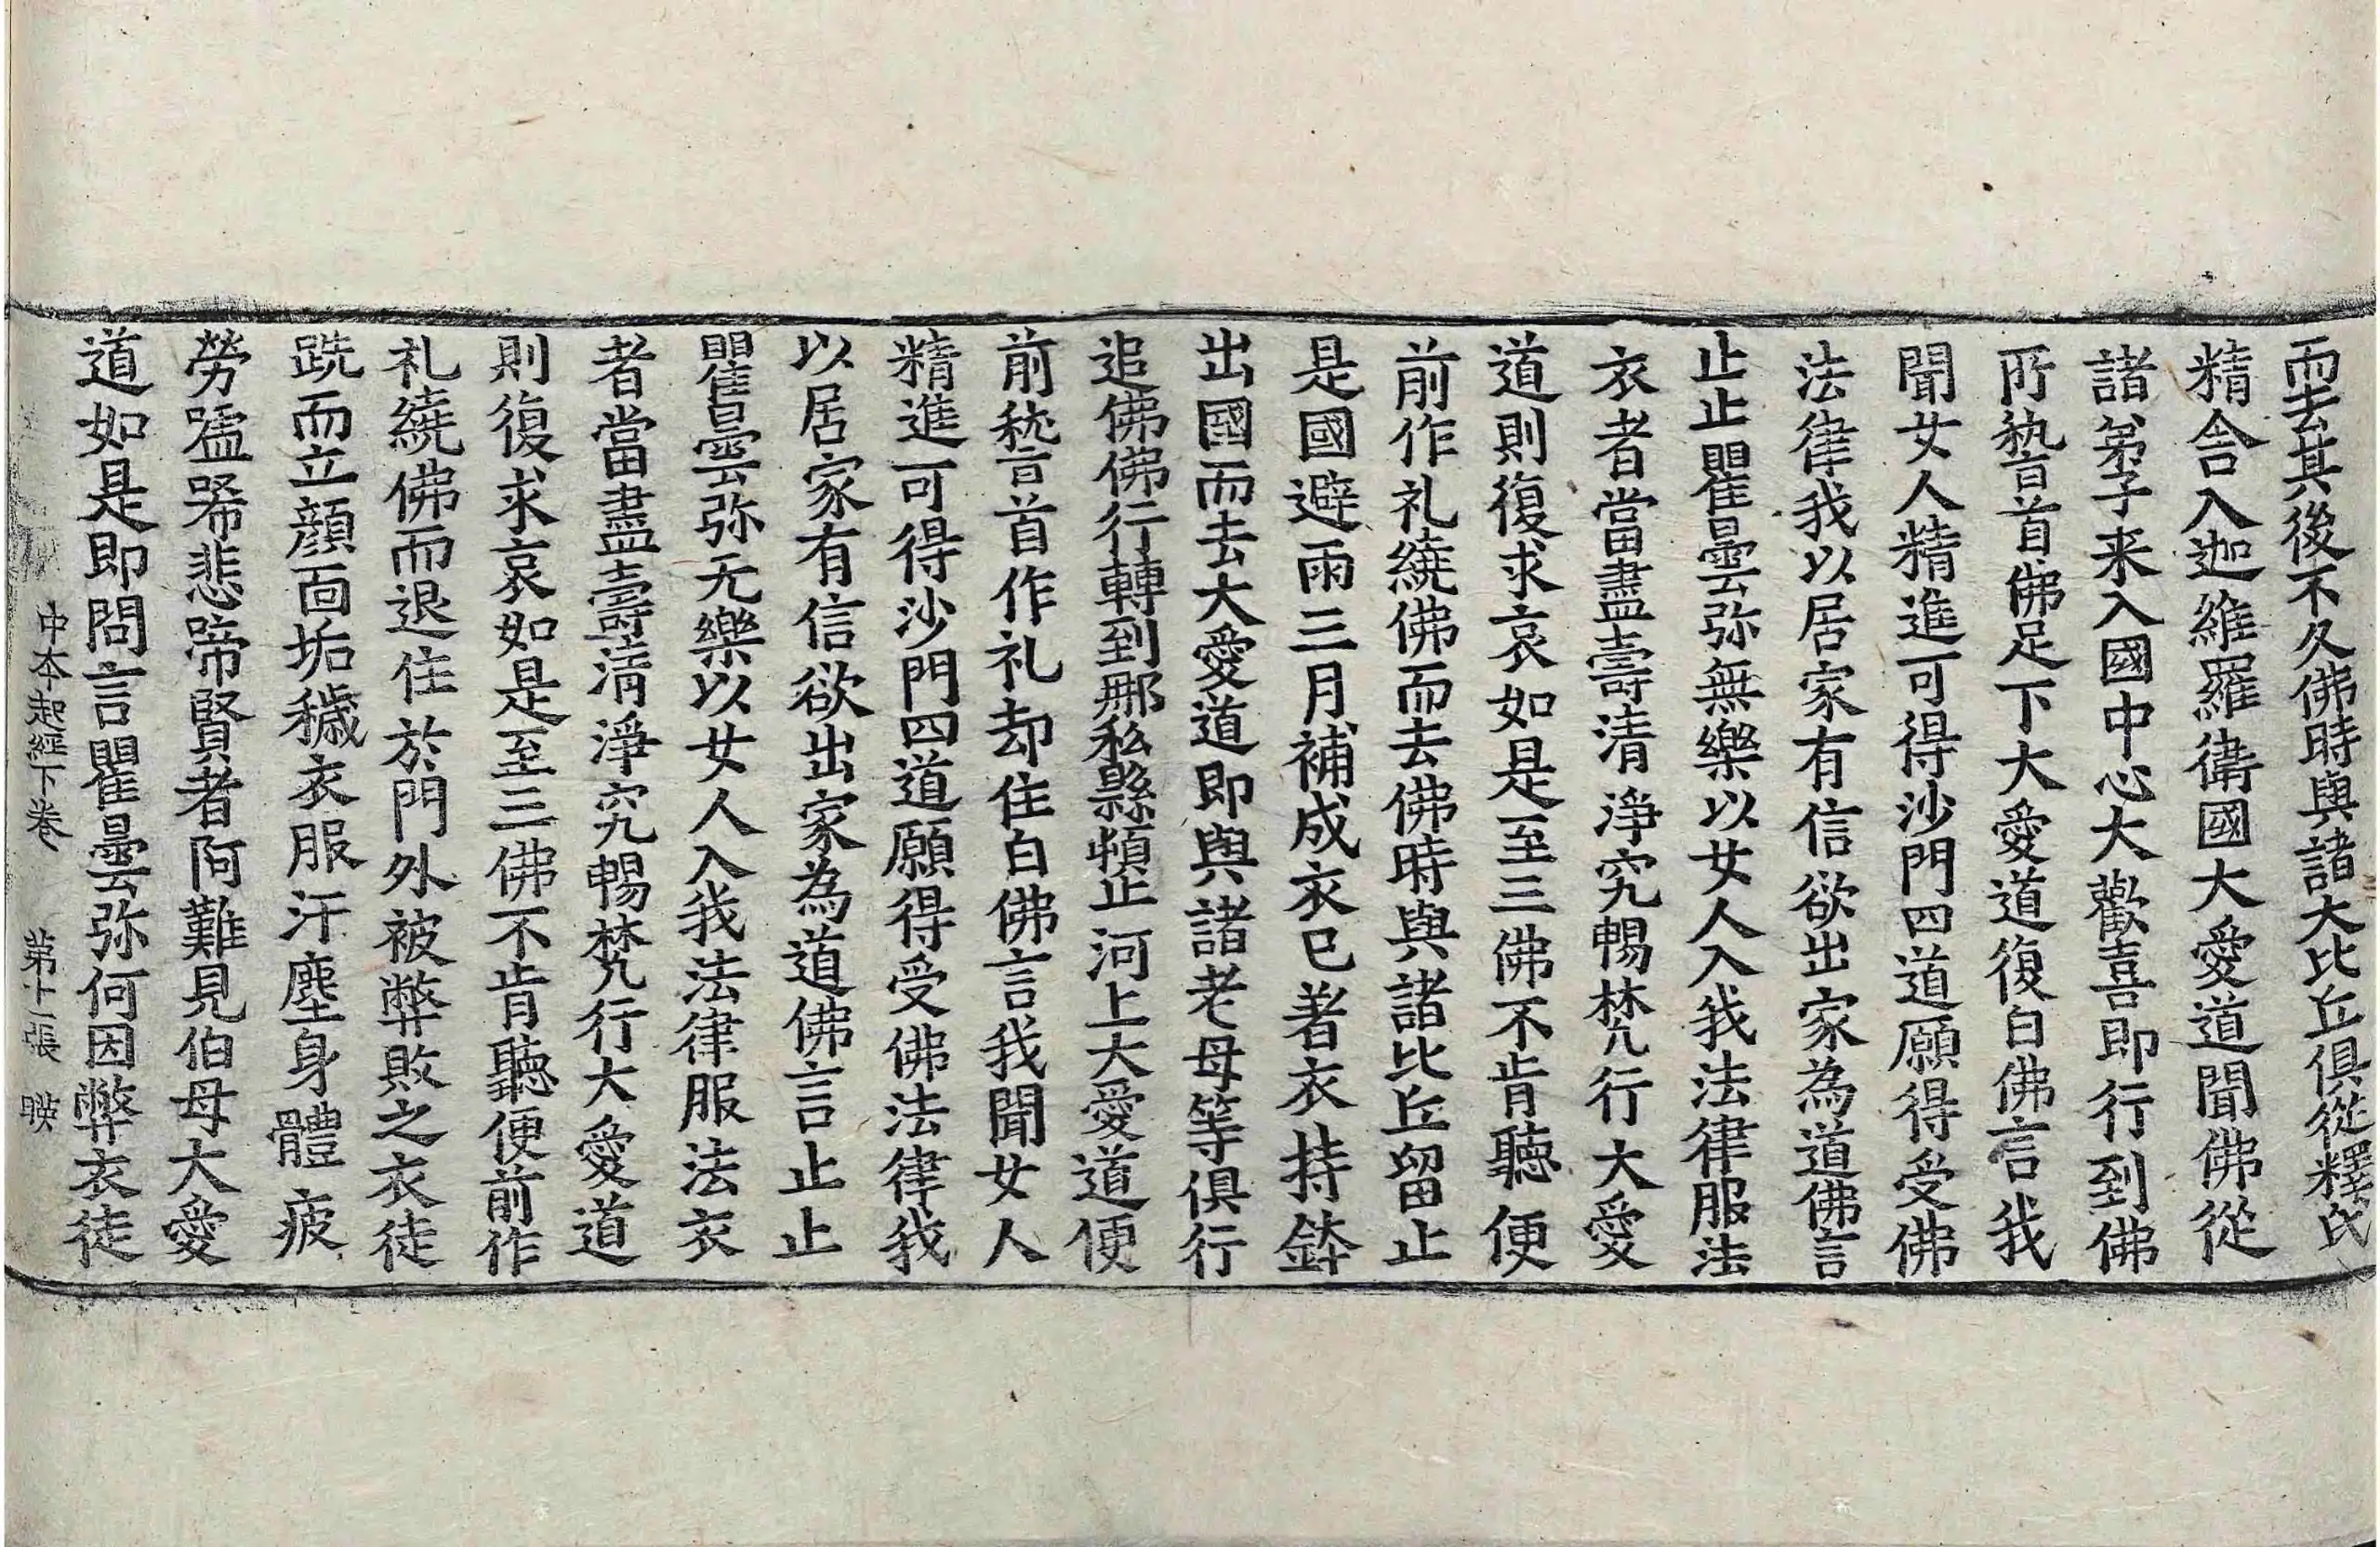 而去其後不久佛時與諸大比丘俱從釋氏
精舍入迦維羅衛國大愛道聞佛從
諸弟子来入國中心大歡喜即行到佛
所嵇首佛足下大愛道復白佛言我
聞女人精進可得沙門四道願得受佛
法律我以居家有信欲出家為道佛言
止止瞿曇弥無樂以女人入我法律服法
衣者當盡壽清淨究暢梵行大愛
道則復求哀如是至三佛不肯聽便
前作礼繞佛而去佛時與諸比丘留止
是國避雨三月補成衣已著衣持鉢
出國而去大愛道即與諸老母等俱行
追佛佛行轉到那私縣頓止河上大愛道便
前嵇首作礼却住白佛言我聞女人
精進可得沙門四道願得受佛法律我
以居家有信欲出家為道佛言止止
瞿曇弥无樂以女人入我法律服法衣
者當盡壽清淨究暢梵行大愛道
則復求哀如是至三佛不肯聽便前作
礼繞佛而退住於門外被弊敗之衣徒
跣而立顔面垢穢衣服汙塵身體疲
勞嘘唏悲啼賢者阿難見伯母大愛
道如是即問言瞿曇弥何因弊衣徒
中本起經下卷 第十二張 暎